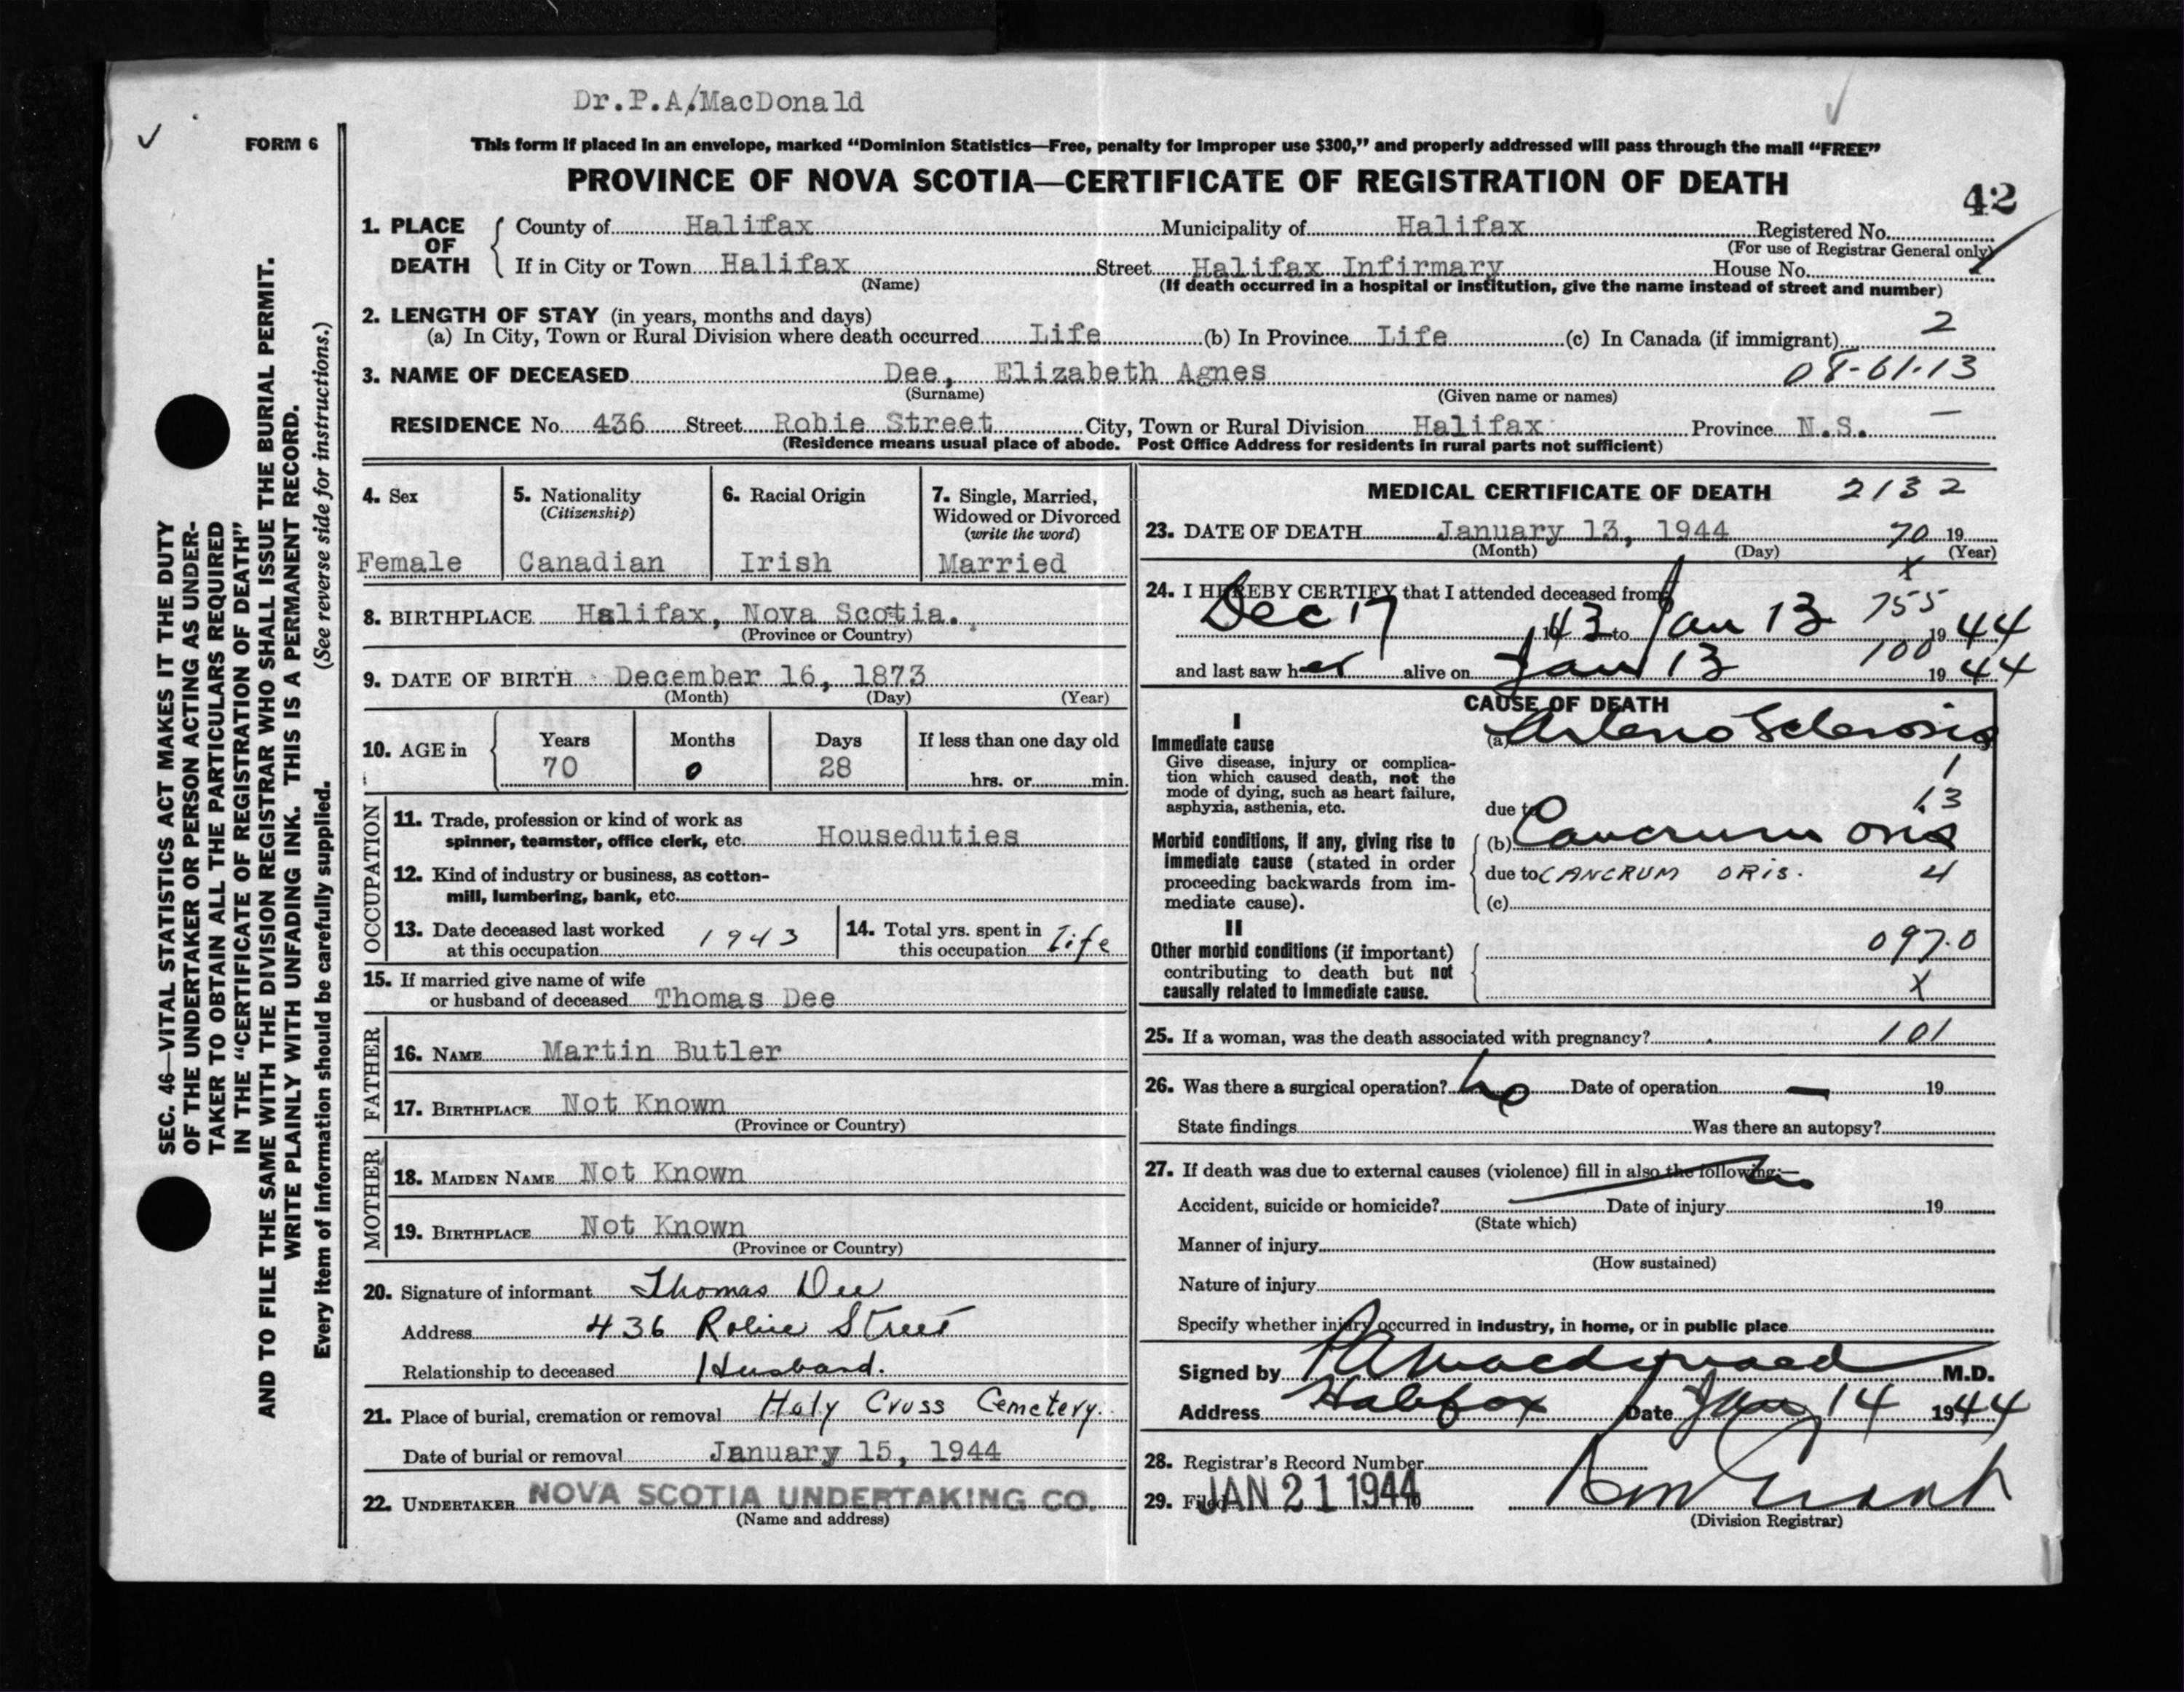 Dr.P.A.MacDonald
FORM 6
This form if placed in an envelope, marked “Dominion Statistics—Free, penalty for improper use $300,” and properly addressed will pass through the mail “FREE”
PROVINCE OF NOVA SCOTIA—CERTIFICATE OF REGISTRATION OF DEATH
42
1. PLACE OF DEATH
County of Halifax Municipality of Halifax Registered No.
(For use of Registrar General only)
If in City or Town Halifax Street Halifax Infirmary House No.
(Name) (If death occurred in a hospital or institution, give the name instead of street and number)
2. LENGTH OF STAY (in years, months and days)
(a) In City, Town or Rural Division where death occurred Life (b) In Province Life (c) In Canada (if immigrant) 2
3. NAME OF DECEASED Dee, Elizabeth Agnes 08-61-13
(Surname) (Given name or names)
RESIDENCE No. 436 Street Robie Street City, Town or Rural Division Halifax Province N.S. —
(Residence means usual place of abode. Post Office Address for residents in rural parts not sufficient)
4. Sex
Female
5. Nationality
(Citizenship)
Canadian
6. Racial Origin
Irish
7. Single, Married,
Widowed or Divorced
(write the word)
Married
8. BIRTHPLACE Halifax, Nova Scotia.
(Province or Country)
9. DATE OF BIRTH December 16, 1873
(Month) (Day) (Year)
10. AGE in
Years Months Days If less than one day old
70 0 28 hrs. or min.
OCCUPATION
11. Trade, profession or kind of work as
spinner, teamster, office clerk, etc. Houseduties
12. Kind of industry or business, as cotton-
mill, lumbering, bank, etc.
13. Date deceased last worked
at this occupation 1943
14. Total yrs. spent in
this occupation Life
15. If married give name of wife
or husband of deceased Thomas Dee
FATHER
16. NAME Martin Butler
17. BIRTHPLACE Not Known
(Province or Country)
MOTHER
18. MAIDEN NAME Not Known
19. BIRTHPLACE Not Known
(Province or Country)
20. Signature of informant Thomas Dee
Address 436 Robie Street
Relationship to deceased Husband.
21. Place of burial, cremation or removal Holy Cross Cemetery.
Date of burial or removal January 15, 1944
22. UNDERTAKER NOVA SCOTIA UNDERTAKING CO.
(Name and address)
MEDICAL CERTIFICATE OF DEATH 2132
23. DATE OF DEATH January 13, 1944 70 19
(Month) (Day) (Year)
x
24. I HEREBY CERTIFY that I attended deceased from
755
Dec 17 1943 to Jan 13 19 44
100
and last saw her alive on Jan 13 19 44
CAUSE OF DEATH
I
Immediate cause
Give disease, injury or complica-
tion which caused death, not the
mode of dying, such as heart failure,
asphyxia, asthenia, etc.
(a) Arterio Sclerosis
1
13
due to
Morbid conditions, if any, giving rise to
immediate cause (stated in order
proceeding backwards from im-
mediate cause).
(b) Cancrum oris
due to CANCRUM ORIS. 4
(c)
II
Other morbid conditions (if important)
contributing to death but not
causally related to immediate cause.
097.0
x
25. If a woman, was the death associated with pregnancy? 101
26. Was there a surgical operation? no Date of operation — 19
State findings Was there an autopsy?
27. If death was due to external causes (violence) fill in also the following:—
Accident, suicide or homicide? Date of injury 19
(State which)
Manner of injury
(How sustained)
Nature of injury
Specify whether injury occurred in industry, in home, or in public place
Signed by P A Macdonald M.D.
Address Halifax Date Jan 14 1944
28. Registrar's Record Number
29. Filed JAN 21 1944 19
(Division Registrar)
SEC. 46—VITAL STATISTICS ACT MAKES IT THE DUTY
OF THE UNDERTAKER OR PERSON ACTING AS UNDER-
TAKER TO OBTAIN ALL THE PARTICULARS REQUIRED
IN THE “CERTIFICATE OF REGISTRATION OF DEATH”
AND TO FILE THE SAME WITH THE DIVISION REGISTRAR WHO SHALL ISSUE THE BURIAL PERMIT.
WRITE PLAINLY WITH UNFADING INK. THIS IS A PERMANENT RECORD.
Every item of information should be carefully supplied. (See reverse side for instructions.)